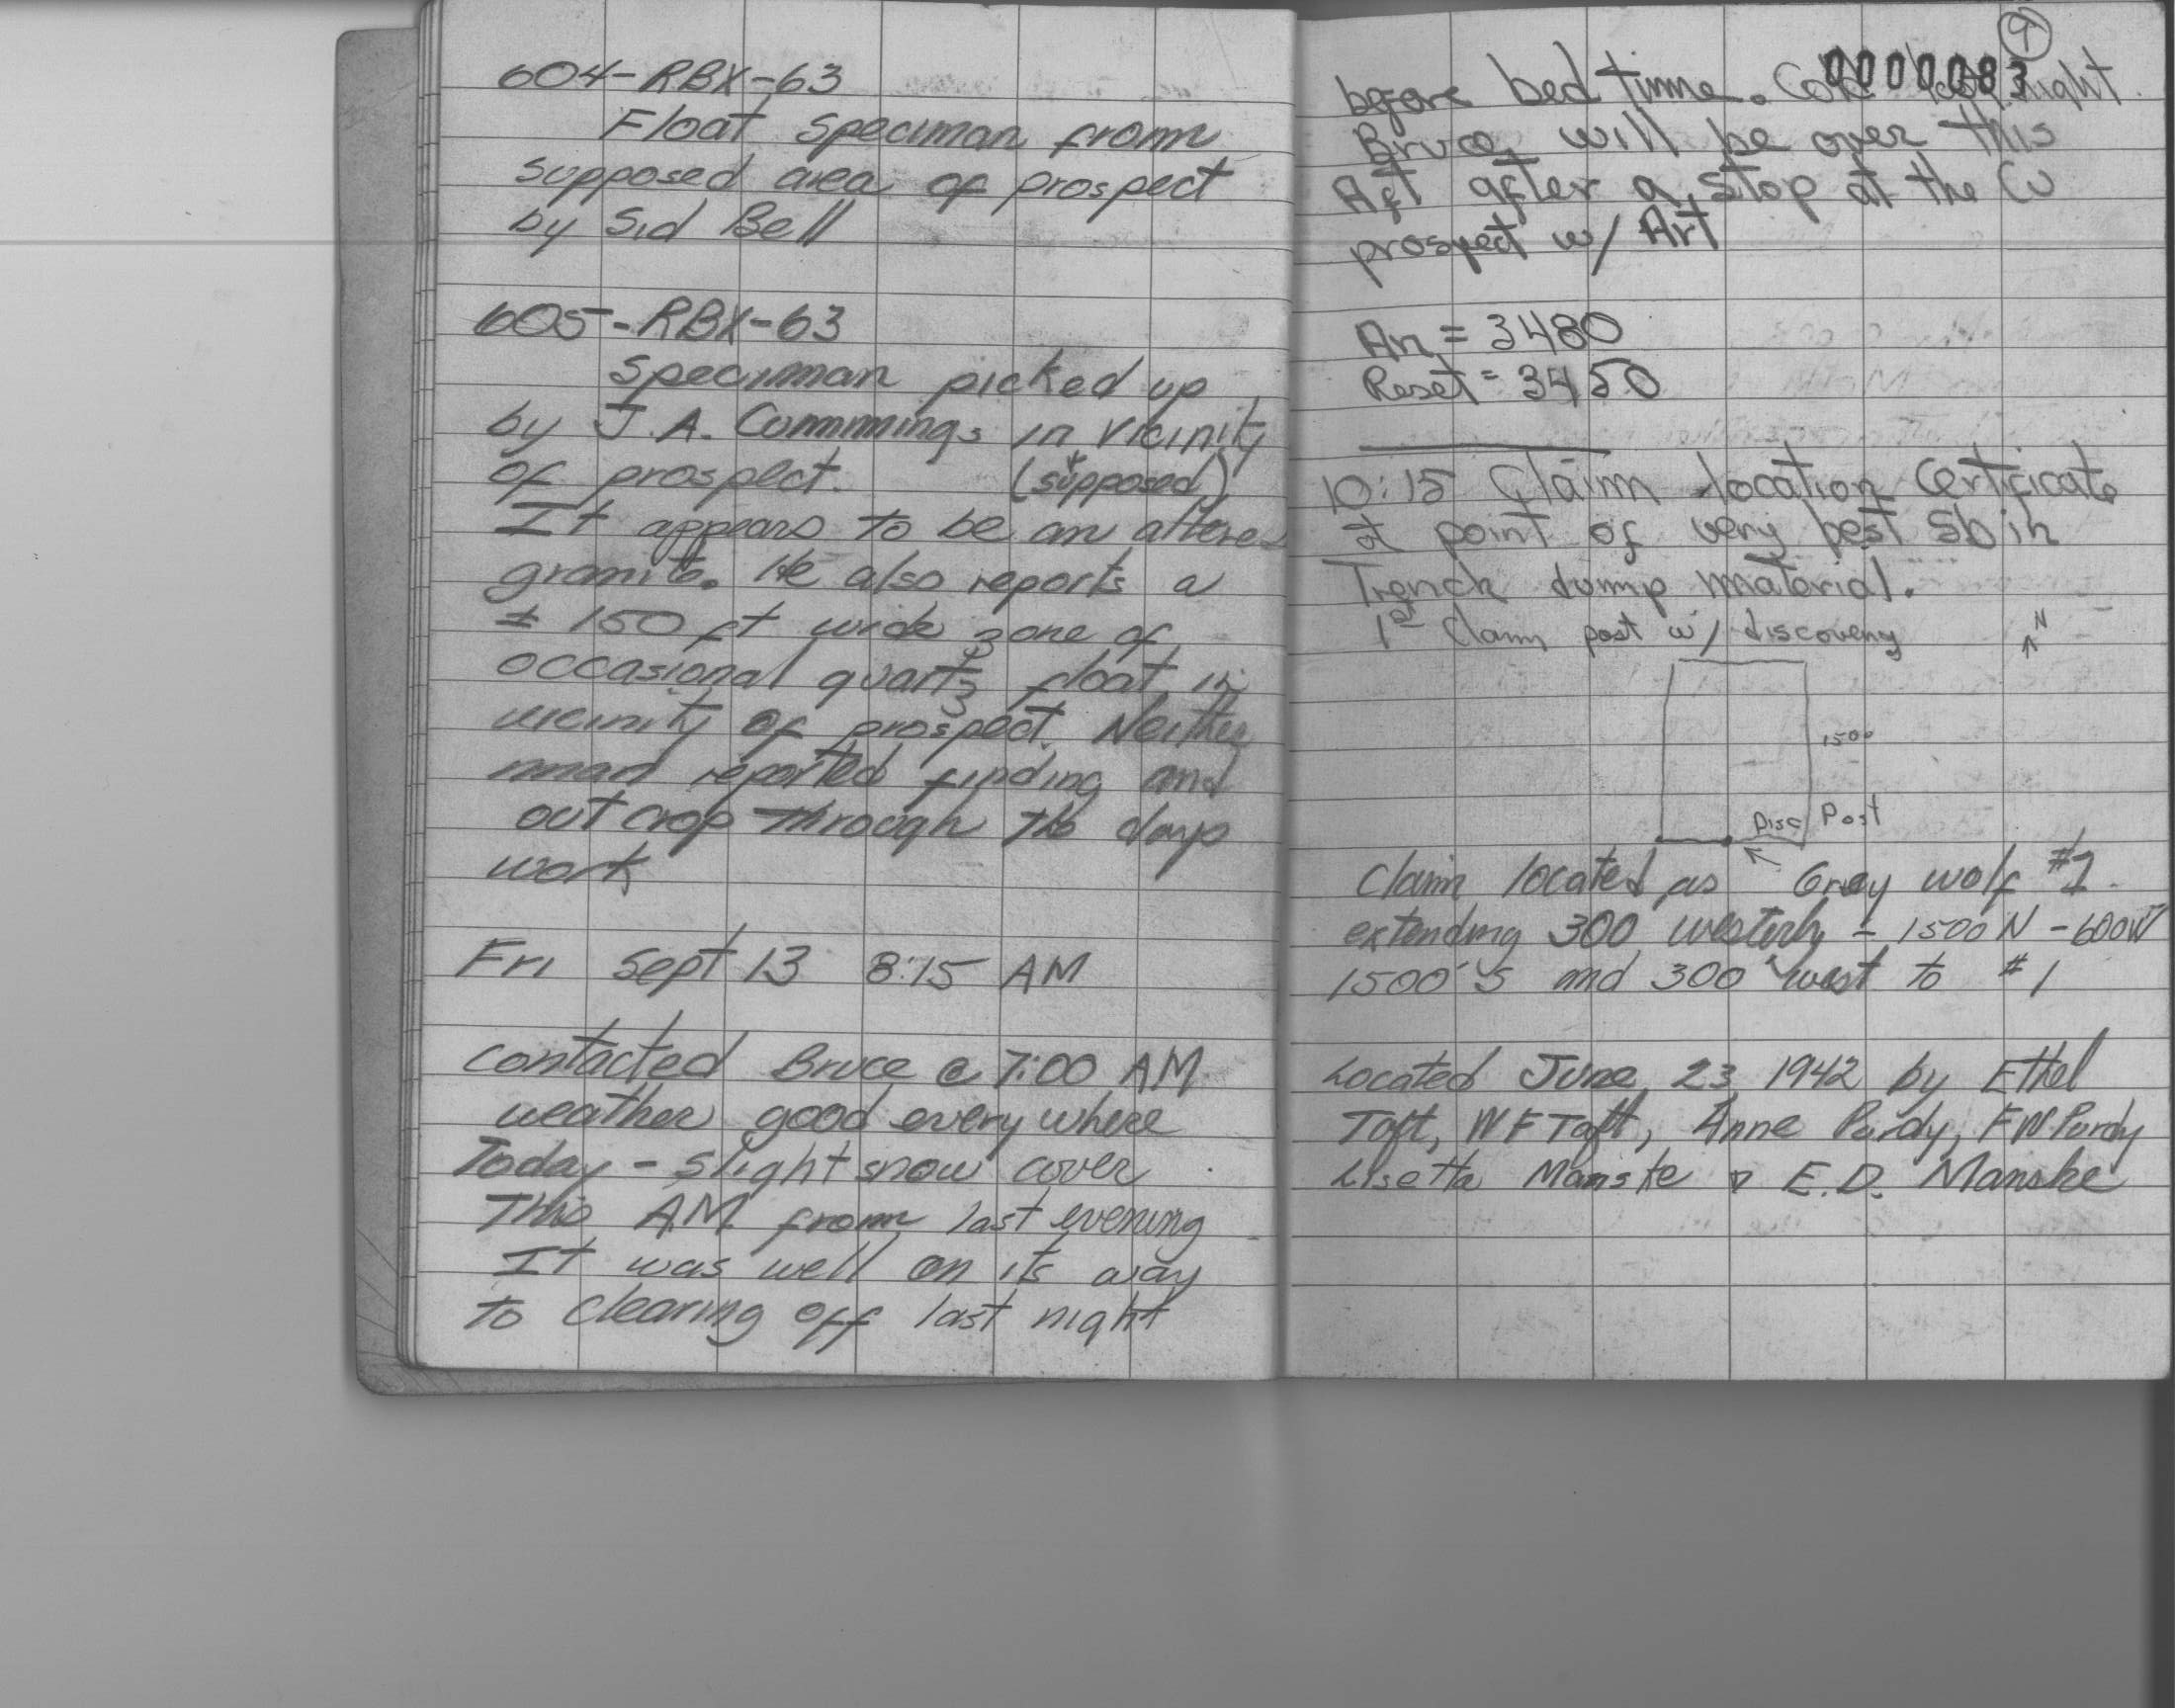 604-RBX-63
Float Speciman from
supposed area of prospect
by Sid Bell
605-RBX-63
Speciman picked up
by J.A. Cummings in vicinity
of prospect. (supposed)
It appears to be an altered
granite. He also reports a
± 150 ft wide zone of
occasional quartz float in
vicinity of prospect. Neither
man reported finding and
outcrop through the days
work
Fri Sept 13 8:15 AM
Contacted Bruce @ 7:00 AM
weather good everywhere
Today - slight snow cover
This A.M. from last evening
It was well on its way
to clearing off last night
9
0000083
before bed time. Cold last night.
Bruce will be over this
Aft after a stop at the Cu
prospect w/ Art
Arr = 3480
Reset = 3450
10:15 Claim location Certificate
at point of very best Sb in
Trench dump material.
1st Claim post w/ discovery
N
1500
Disc Post
Claim located as Grey wolf #1.
extending 300 westerly - 1500 N - 600W
1500' S and 300 west to #1
Located June 23 1942 by Ethel
Taft, WF Taft, Anne Purdy, FW Purdy
Lisetta Manske & E.D. Manske